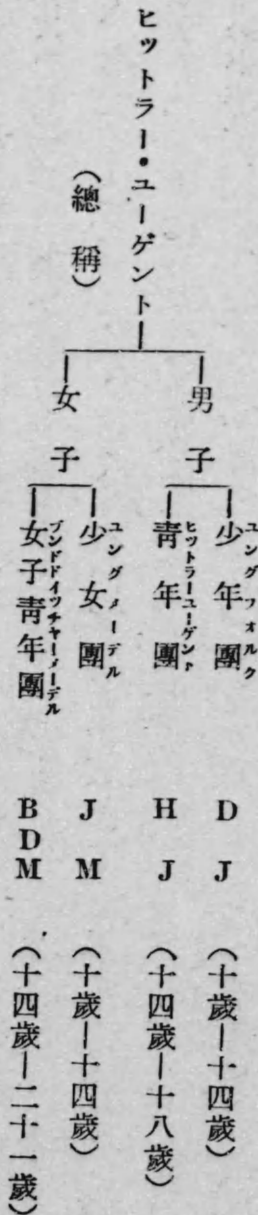 ヒットラー・ユーゲント
(總稱)
男子
少年團 ユングフォルク DJ (十歳―十四歳)
青年團 ヒットラーユーゲント HJ (十四歳―十八歳)
女子
少女團 ユングメーデル JM (十歳―十四歳)
女子青年團 ブンドドイツチャーメーデル BDM (十四歳―二十一歳)